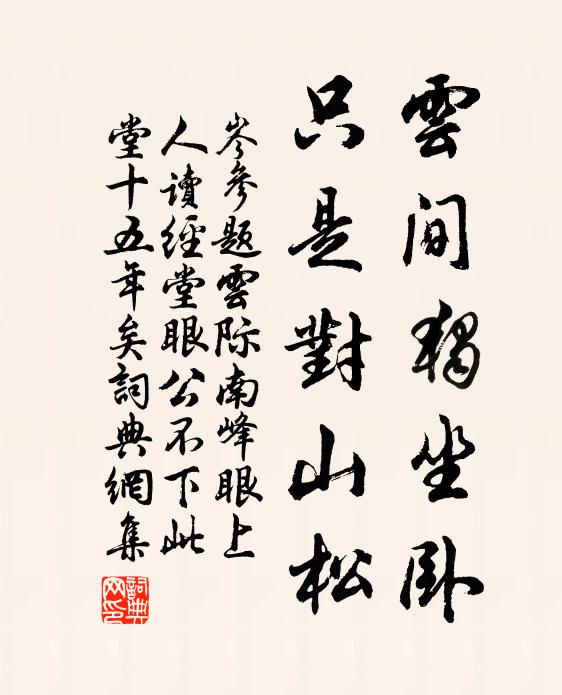 雲间獨坐卧
只是對山松
岑參題雲际南峰眼上
人讀經堂眼公不下此
堂十五年矣詞典網集
詞典网印